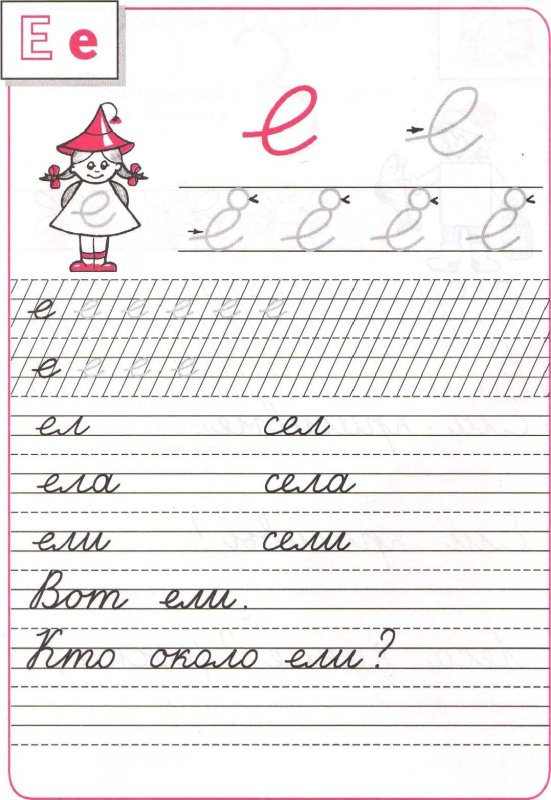 Е е
е е
е е е е
е е е е е е
е е е е
ел сел
ела села
ели сели
Вот ели.
Кто около ели?